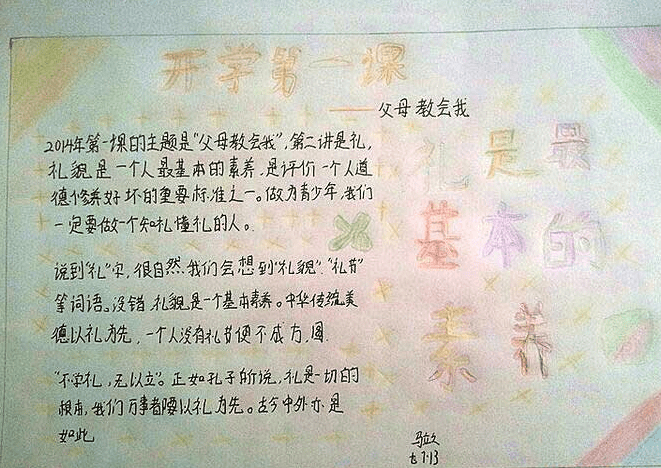 开学第一课
——父母教会我
2014年第一课的主题是“父母教会我”，第二讲是礼，
礼貌是一个人最基本的素养，是评价一个人道
德修养好坏的重要标准之一。做为青少年，我们
一定要做一个知礼懂礼的人。
说到“礼”字，很自然我们会想到“礼貌”“礼节”
等词语。没错，礼貌是一个基本素养。中华传统美
德以礼为先，一个人没有礼节便不成方圆。
“不学礼，无以立”。正如孔子所说，礼是一切的
根本，我们万事都要以礼为先。古今中外亦是
如此
礼是最
基本的
素养